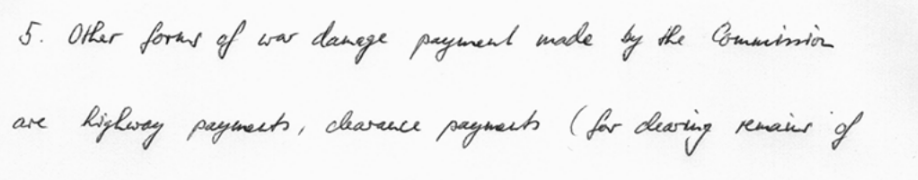 5. Other forms of war damage payment made by the Commission
are highway payments, clearance payments (for clearing remains of